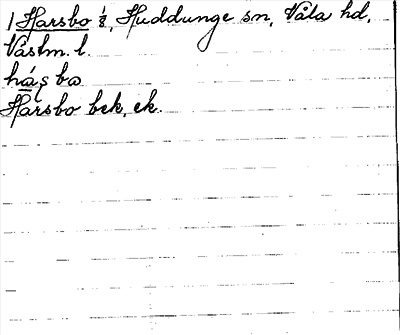 1 Harsbo ½, Huddunge sn, Våla hd,
Västm. l.
háṣbo
Harsbo bek, ek.